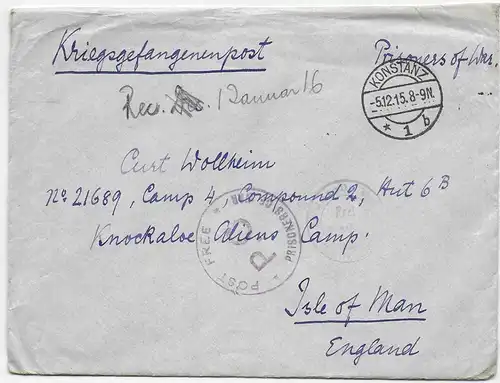 Kriegsgefangenenpost
Prisoners of War.
KONSTANZ
-5.12.15.8-9N.
* 1 b
Rec. 1 Januar 16
Curt Wollheim
No. 21689, Camp 4, Compound 2, Hut 6 B
Knockaloe Aliens Camp.
POST FREE
PRISONERS OF WAR
P C
Isle of Man
England